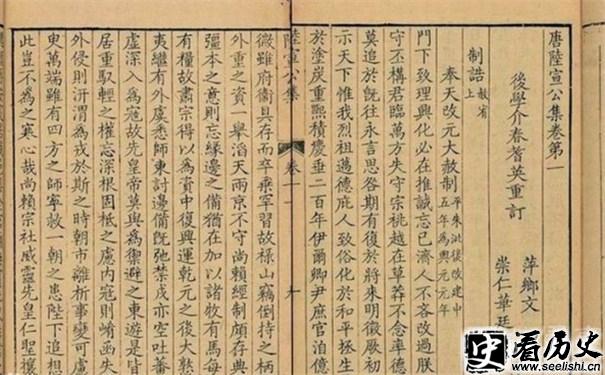 唐陸宣公集卷第一
後學介春耆英重訂
萍鄉文
崇仁華廷
制誥 赦宥上
奉天改元大赦制 平朱泚後改建中五年為興元元年
門下致理興化必在推誠忘己濟人不吝改過朕
守丕構君臨萬方失守宗祧越在草莽不念率德
莫追於既往永言思咎期有復於將來明徵厥初
示天下惟我烈祖邁德庇人致俗化於和平拯生
於塗炭重熙積慶垂二百年伊爾卿尹庶官洎億
陸宣公集
卷十一
微雖府衛具存而卒乘罕習故祿山竊倒持之柄
外重之資一舉滔天兩京不守尚賴經制頗存典
彊本之意則忘緣邊之備猶在加以諸牧有馬每
有糧故肅宗得以為資中復興運乾元之後大憝
夷繼有外虞悉師東討邊備既弛禁戍亦空吐蕃
虛深入為寇故先皇帝莫與為禦避之東遊是皆
居重馭輕之權忘深根固柢之慮內寇則崤函失
外侵則汧渭為戎於斯之時朝市離析事變可慮
臾萬端雖有四方之師寧救一朝之患陛下追想
此豈不為之寒心哉尚賴宗社威靈先皇仁聖攘
史看历史
www.seelishi.cn